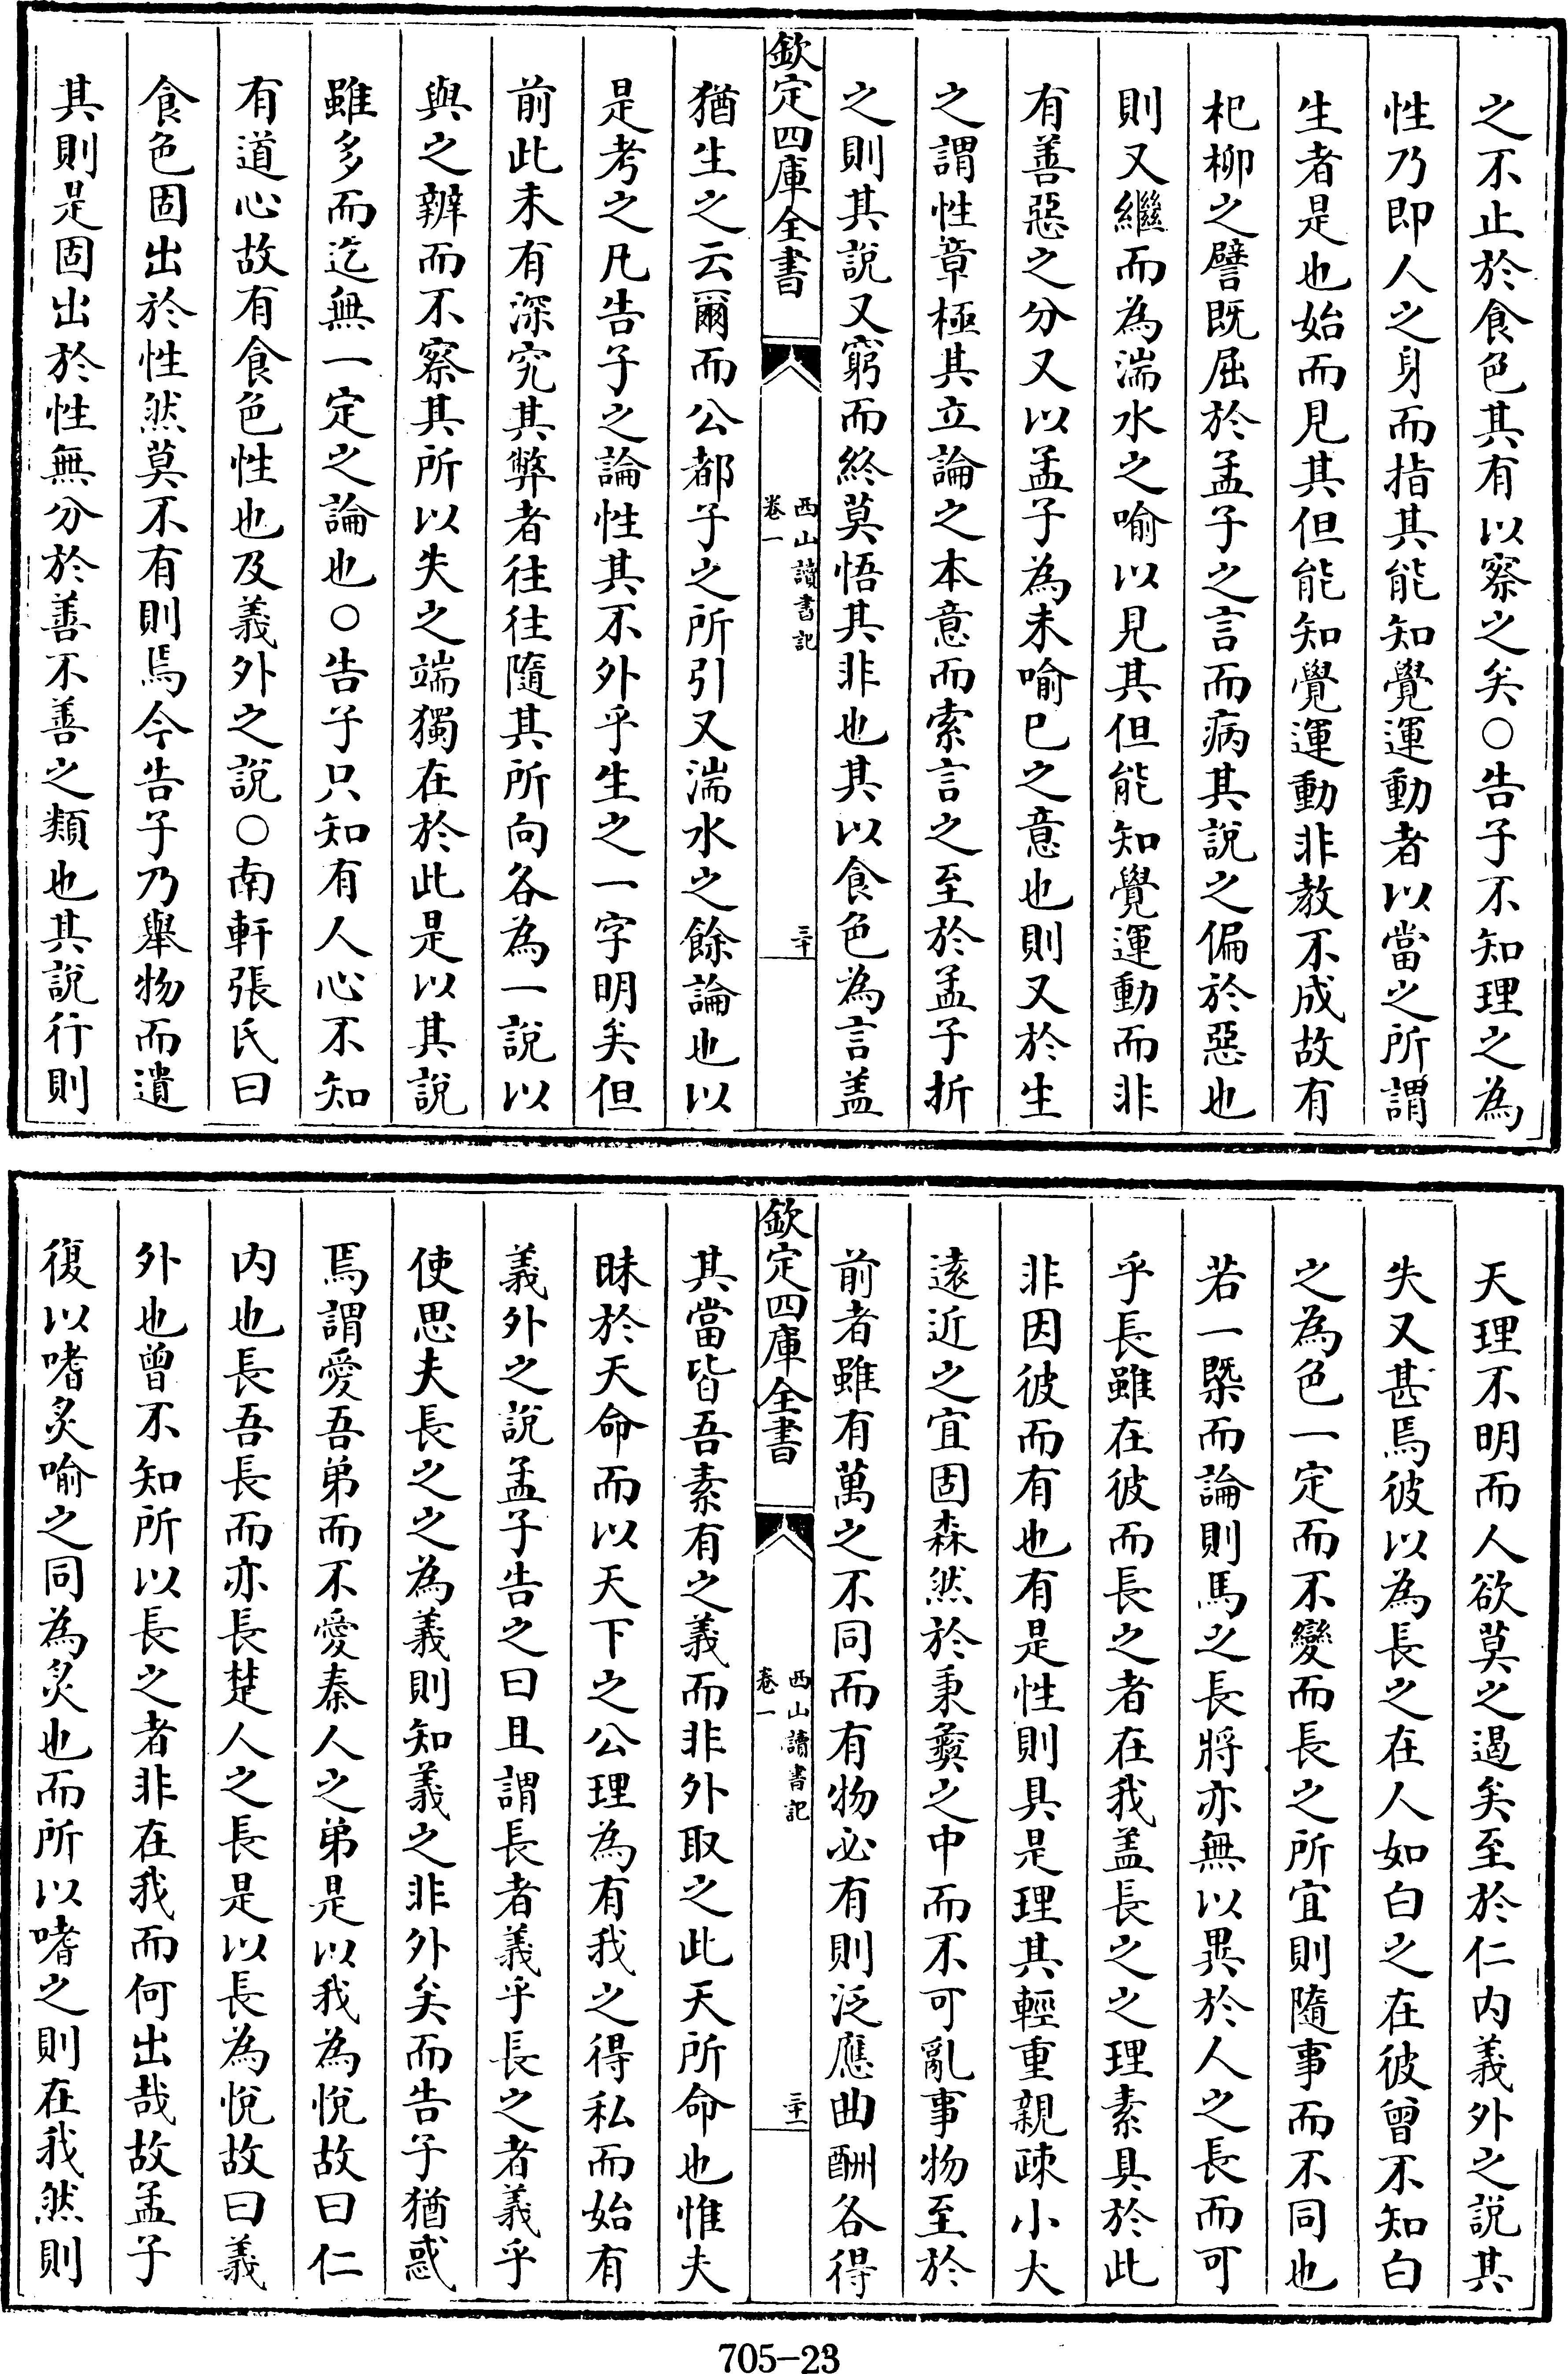 之不止於食色其有以察之矣○告子不知理之為
性乃即人之身而指其能知覺運動者以當之所謂
生者是也始而見其但能知覺運動非教不成故有
杞柳之譬既屈於孟子之言而病其說之偏於惡也
則又繼而為湍水之喻以見其但能知覺運動而非
有善惡之分又以孟子為未喻已之意也則又於生
之謂性章極其立論之本意而索言之至於孟子折
之則其說又窮而終莫悟其非也其以食色為言盖
欽定四庫全書
西山讀書記
卷一
三十
猶生之云爾而公都子之所引又湍水之餘論也以
是考之凡告子之論性其不外乎生之一字明矣但
前此未有深究其弊者往往隨其所向各為一說以
與之辨而不察其所以失之端獨在於此是以其說
雖多而迄無一定之論也○告子只知有人心不知
有道心故有食色性也及義外之說○南軒張氏曰
食色固出於性然莫不有則焉今告子乃舉物而遺
其則是固出於性無分於善不善之類也其說行則
天理不明而人欲莫之遏矣至於仁内義外之説其
失又甚焉彼以為長之在人如白之在彼曾不知白
之為色一定而不變而長之所宜則隨事而不同也
若一槩而論則馬之長將亦無以異於人之長而可
乎長雖在彼而長之者在我盖長之之理素具於此
非因彼而有也有是性則具是理其輕重親疎小大
逺近之宜固森然於秉彝之中而不可亂事物至於
前者雖有萬之不同而有物必有則泛應曲酬各得
欽定四庫全書
西山讀書記
卷一
三十一
其當皆吾素有之義而非外取之此天所命也惟夫
昧於天命而以天下之公理為有我之得私而始有
義外之説孟子告之曰且謂長者義乎長之者義乎
使思夫長之之為義則知義之非外矣而告子猶惑
焉謂愛吾弟而不愛秦人之弟是以我為悅故曰仁
内也長吾長而亦長楚人之長是以長為悅故曰義
外也曾不知所以長之者非在我而何出哉故孟子
復以嗜炙喻之同為炙也而所以嗜之則在我然則
705-23